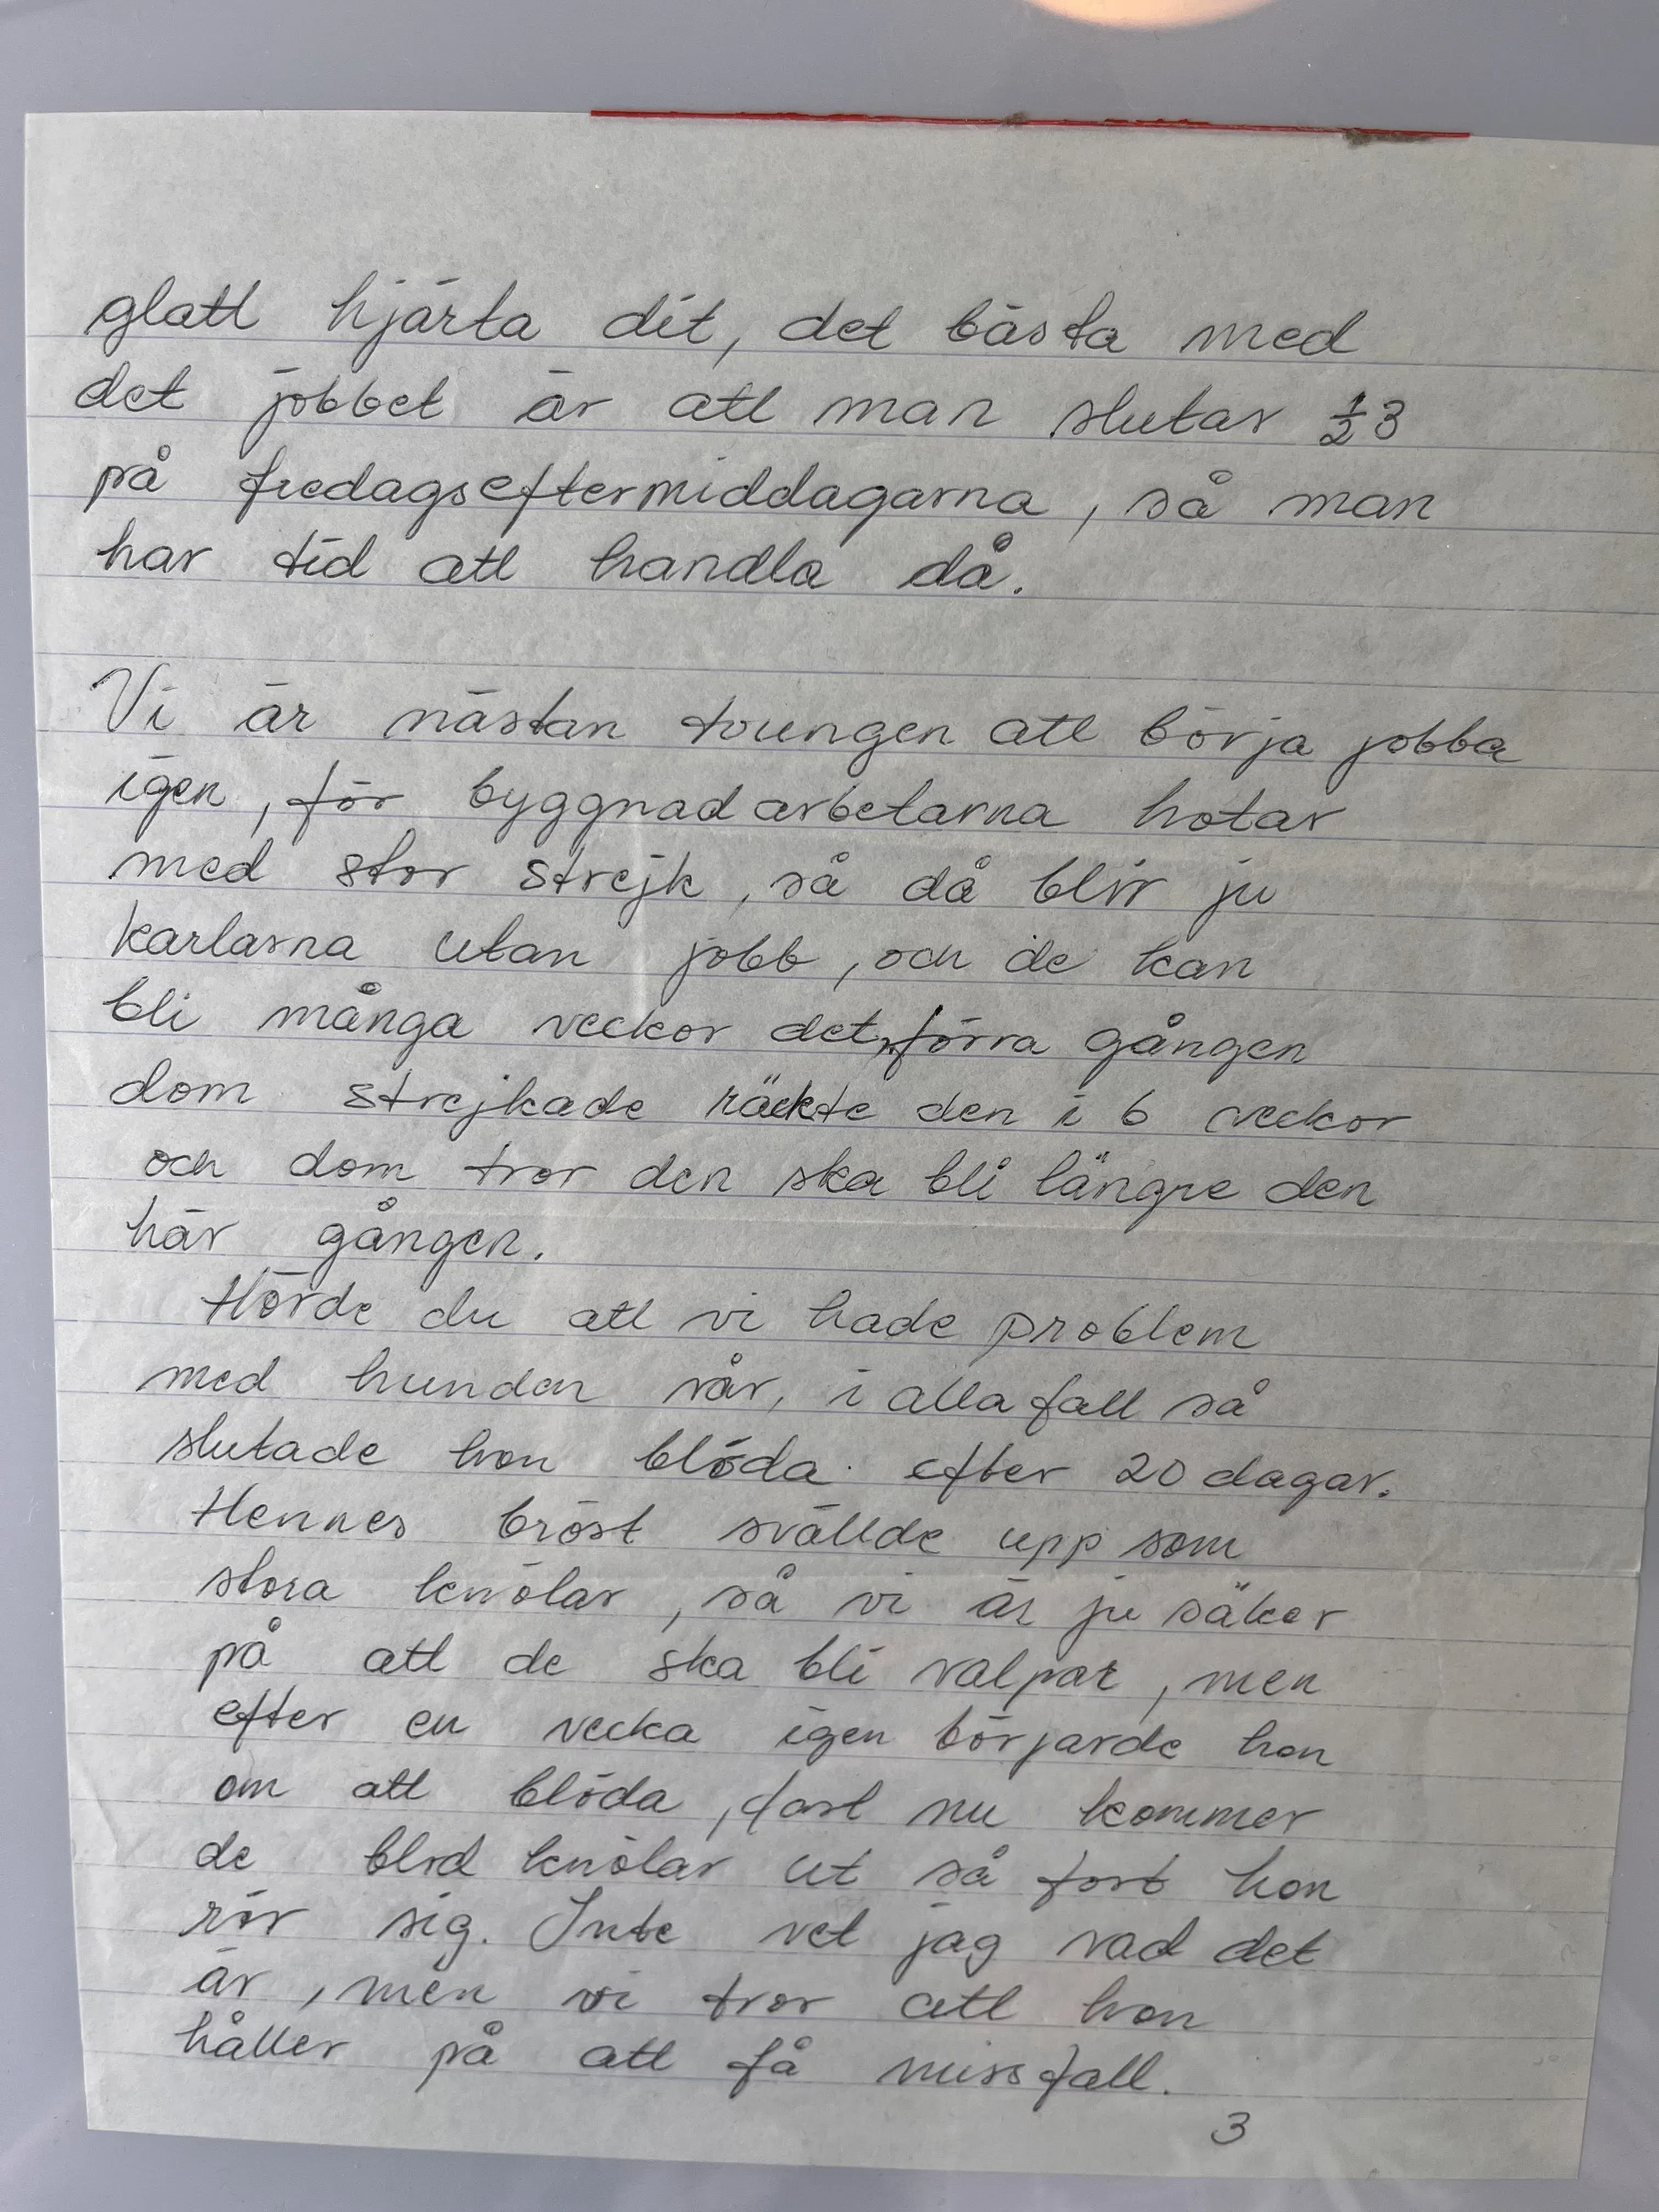 glatt hjärta dit, det bästa med
det jobbet är att man slutar ½3
på fredagseftermiddagarna, så man
har tid att handla då.
Vi är nästan tvungen att börja jobba
igen, för byggnadarbetarna hotar
med stor strejk, så då blir ju
karlarna utan jobb, och de kan
bli många veckor det, förra gången
dom strejkade räckte den i 6 veckor
och dom tror den ska bli längre den
här gången.
Hörde du att vi hade problem
med hunden vår, i alla fall så
slutade hon blöda efter 20 dagar.
Hennes bröst svällde upp som
stora knölar, så vi är ju säker
på att de ska bli valpar, men
efter en vecka igen börjarde hon
om att blöda, fast nu kommer
de blod knölar ut så fort hon
rör sig. Inte vet jag vad det
är, men vi tror att hon
håller på att få missfall.
3